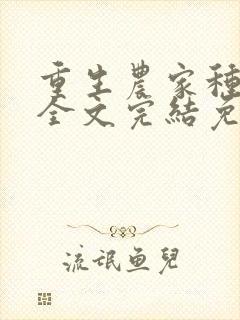 重生農家種
全文完結免
流氓魚兒